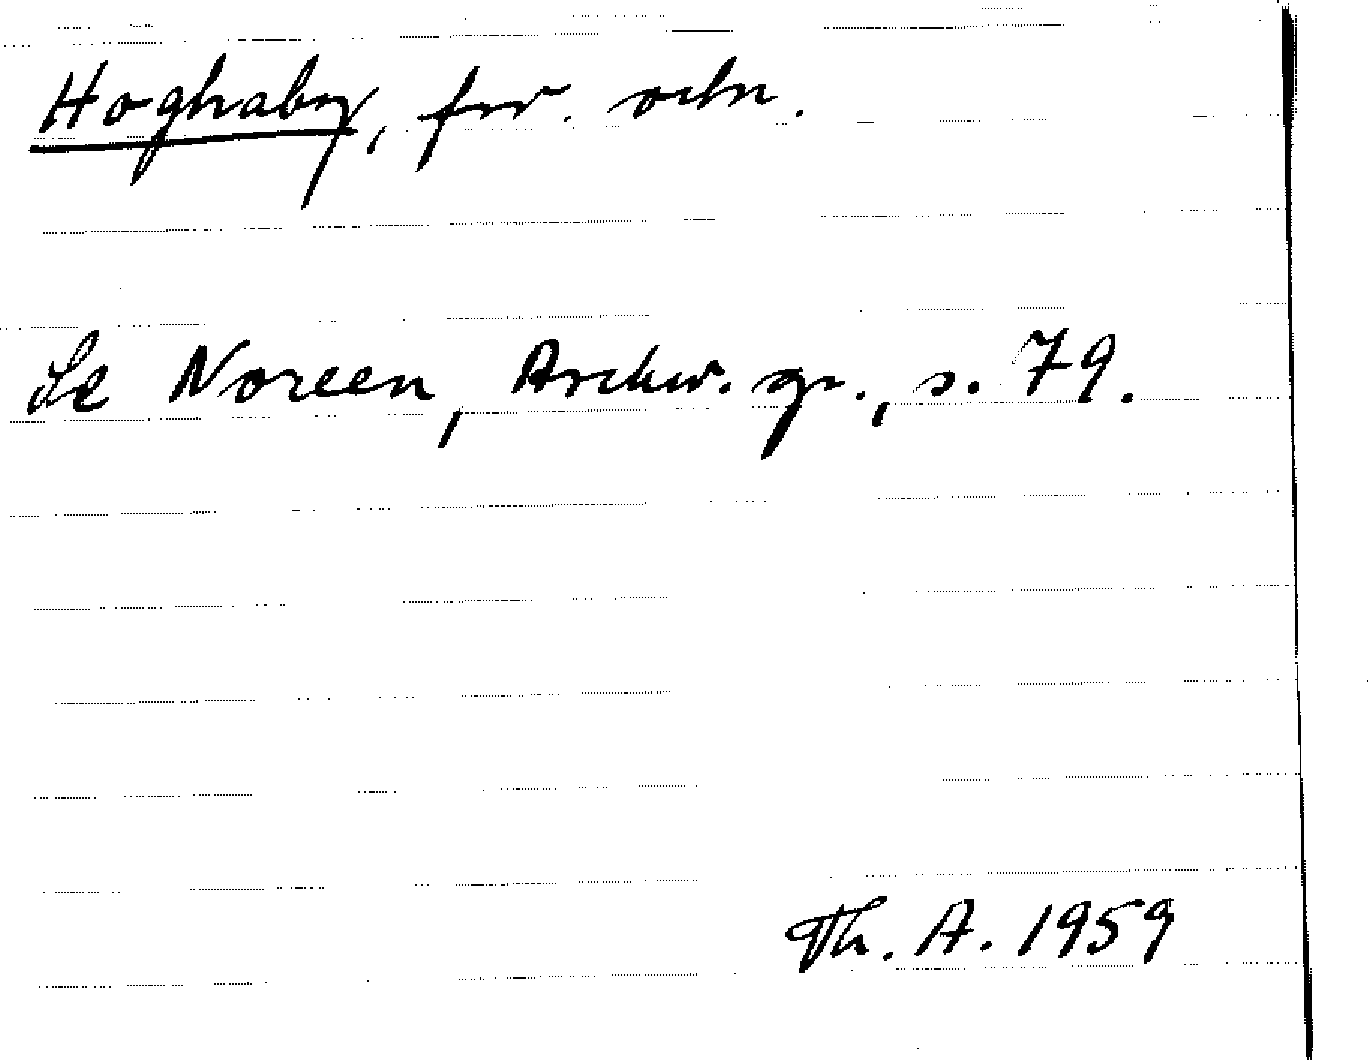 Hoghaby, frv. ortn.
Se Noreen, Ärtemv. gr., s. 79.
Th. A. 1959